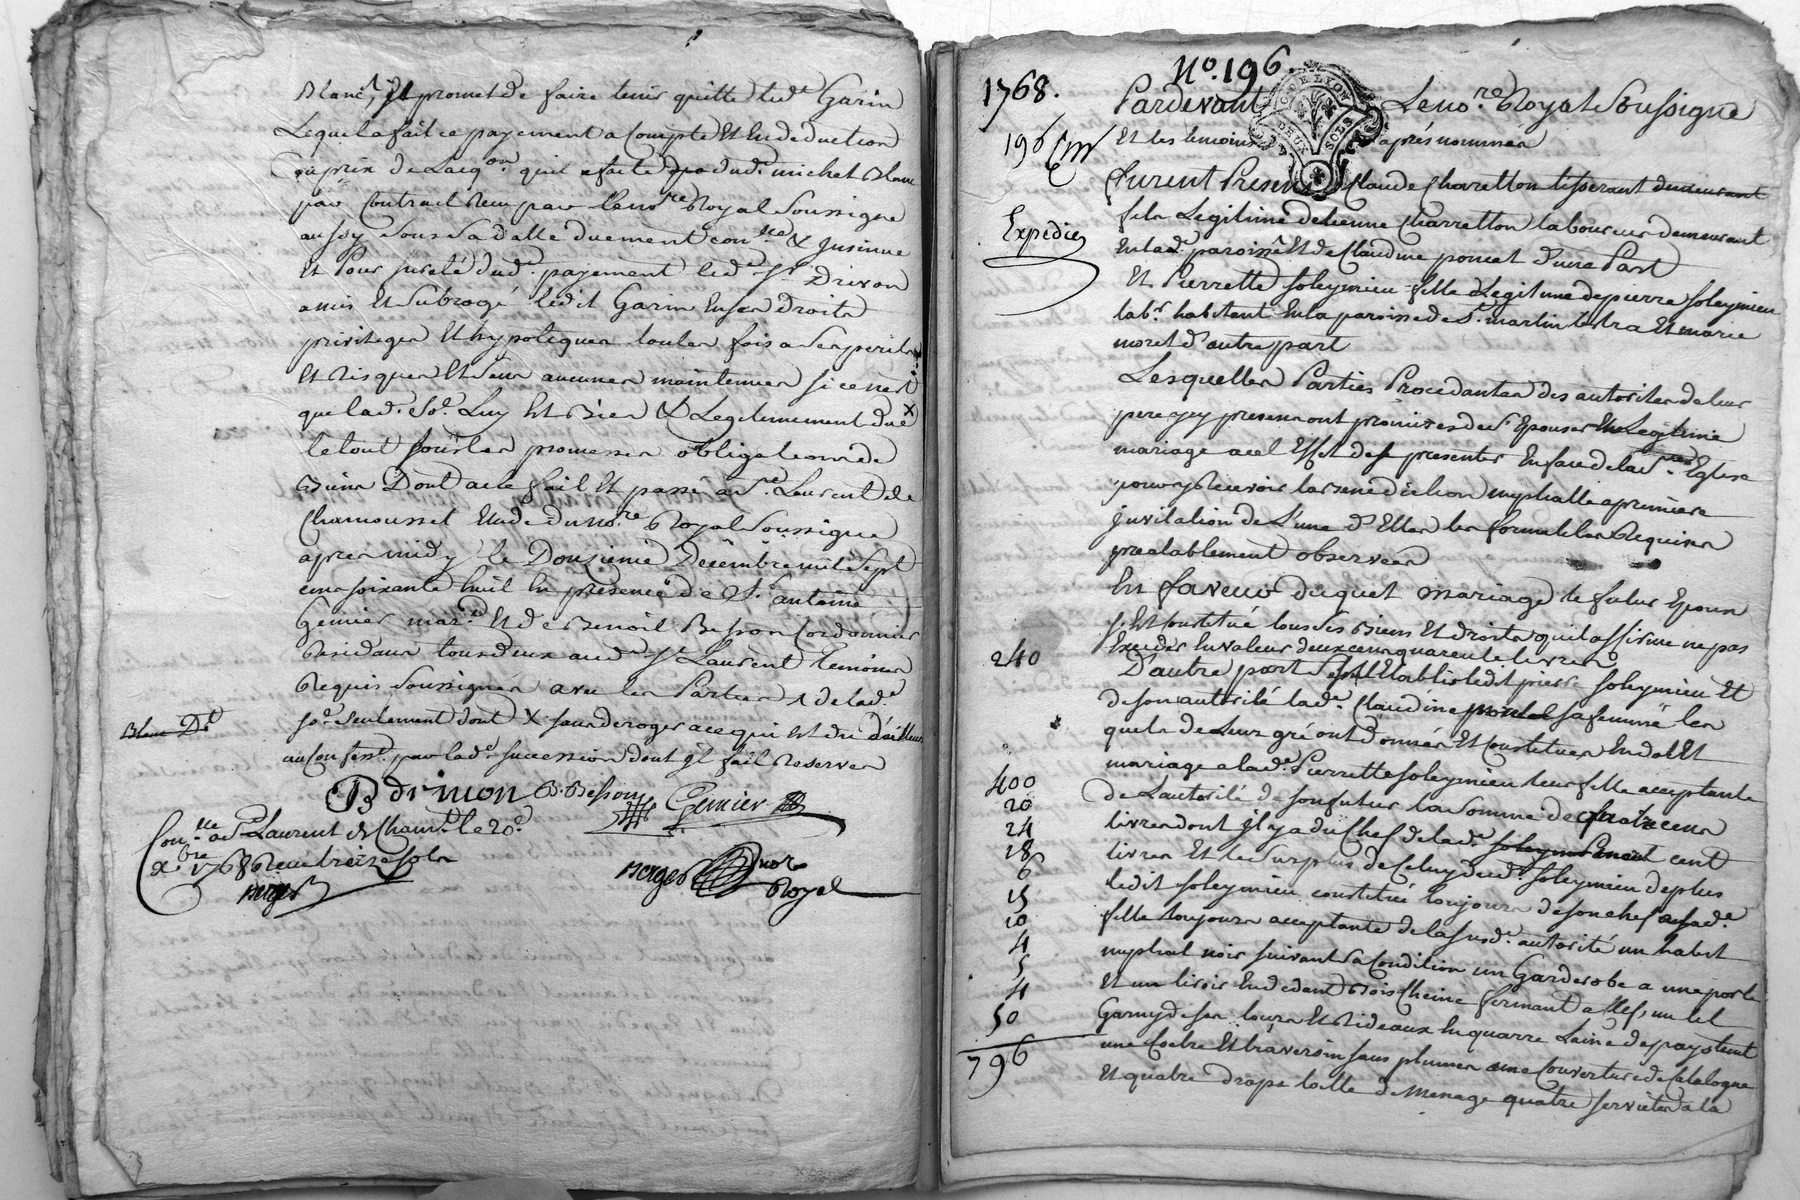 Blanc, et promet de faire tenir quitte led.t Garin
Lequel a fait ce payement a Compte Et En deduction
du prix de Lacq.on quil a faite dud.t michel Blanc
par Contract Recu par Le no.re Royal Soussigné
aujoy Sous Sa datte duement con.llé & Jnsinué
Et Pour sureté dud.t payement led.t S.r Drivon
a mis Et Subrogé ledit Garin En Ses droits
privileges Et hypoteques toutes fois a Ses perils
Et Risques Et Sans aucunes maintenues si ce nest
que lad.e So.e Luy Est Bien & Legitimement due X
le tout sous les promesses obligations de
Biens Dont acte fait Et passé a S.t Laurent de
Chamousset Etude du no.re Royal Soussigné
apres midy le Douzieme Decembre mil Sept
cens soixante huit En presence de S.r antoine
Genier mar.d Et de Benoit Besson Cordonnier
Residans tous deux aud.t S.t Laurent Temoins
Requis Soussignés avec les Parties
so.e seulement dont X sans deroger a ce qui Est du d'ailleurs
par lad.e succession dont jl fait Reserves
Blanc D.t
B drivon B. Besson Genier
Con.llé a S.t Laurent de Cham.t le 20.e
X.bre 1768 Recu treize sols
Berger
Berger not.re
Royal
N.o 196.
1768. Pardevant Le no.re Royal Soussigné
G. DE LYON
DEUX SOLS
196 Et les temoins après nommés
Furent Presens Claude Charretton tisserant demeurant
Expedié
fils Legitime detienne Charretton laboureur demeurant
En lad.e paroisse Et de Claudine poncet d'une Part
Et Pierrette Soleymieu fille Legitime de pierre Soleymieu
lab.r habitant En la paroisse de S.t martin Et marie
moret d'autre part
Lesquelles Parties Procedantes des autorités de leur
pere jcy presens ont promis Epouser En Legitime
mariage a cet Effet de se presenter En face de la S.te Eglise
pour y Recevoir la Benediction nuptialle a premiere
jnvitation de L'une d'Elles les formalités Requises
prealablement observées
En faveur duquel mariage le futur Epoux
s'Est Constitué tous Ses Biens Et droits quil affirme ne pas
240 Exceder En valeur deux cens quarente livres
D'autre part Sest Etabli ledit pierre Soleymieu Et
de son autorité lad.e Claudine sa femme les
quels de Leur gré ont donné Et Constitué En dot Et
mariage a lad.e Pierrette Soleymieu leur fille acceptante
400 de L'autorité de son futur la Somme de quatre cens
20 livres dont jl y a du Chef de lad.e cent
24 livres Et le Surplus de Celuy dud.t Soleymieu de plus
18 ledit Soleymieu constitue toujours de son chef a sad.e
6 fille toujours acceptante de la susd.e autorité un habit
15 nuptial noir suivant Sa Condition un Garderobe a une porte
10 Et un tiroir En dedans Bois Cheine fermant a Clef, un lit
4 Garny de Ses tours Et Rideaux En quarré Laine de pays teint
5 une Coetre Et traversin sans plumes une Couverture de Catalogne
4 Et quatre draps toille de menage quatre serviettes a la
50
796